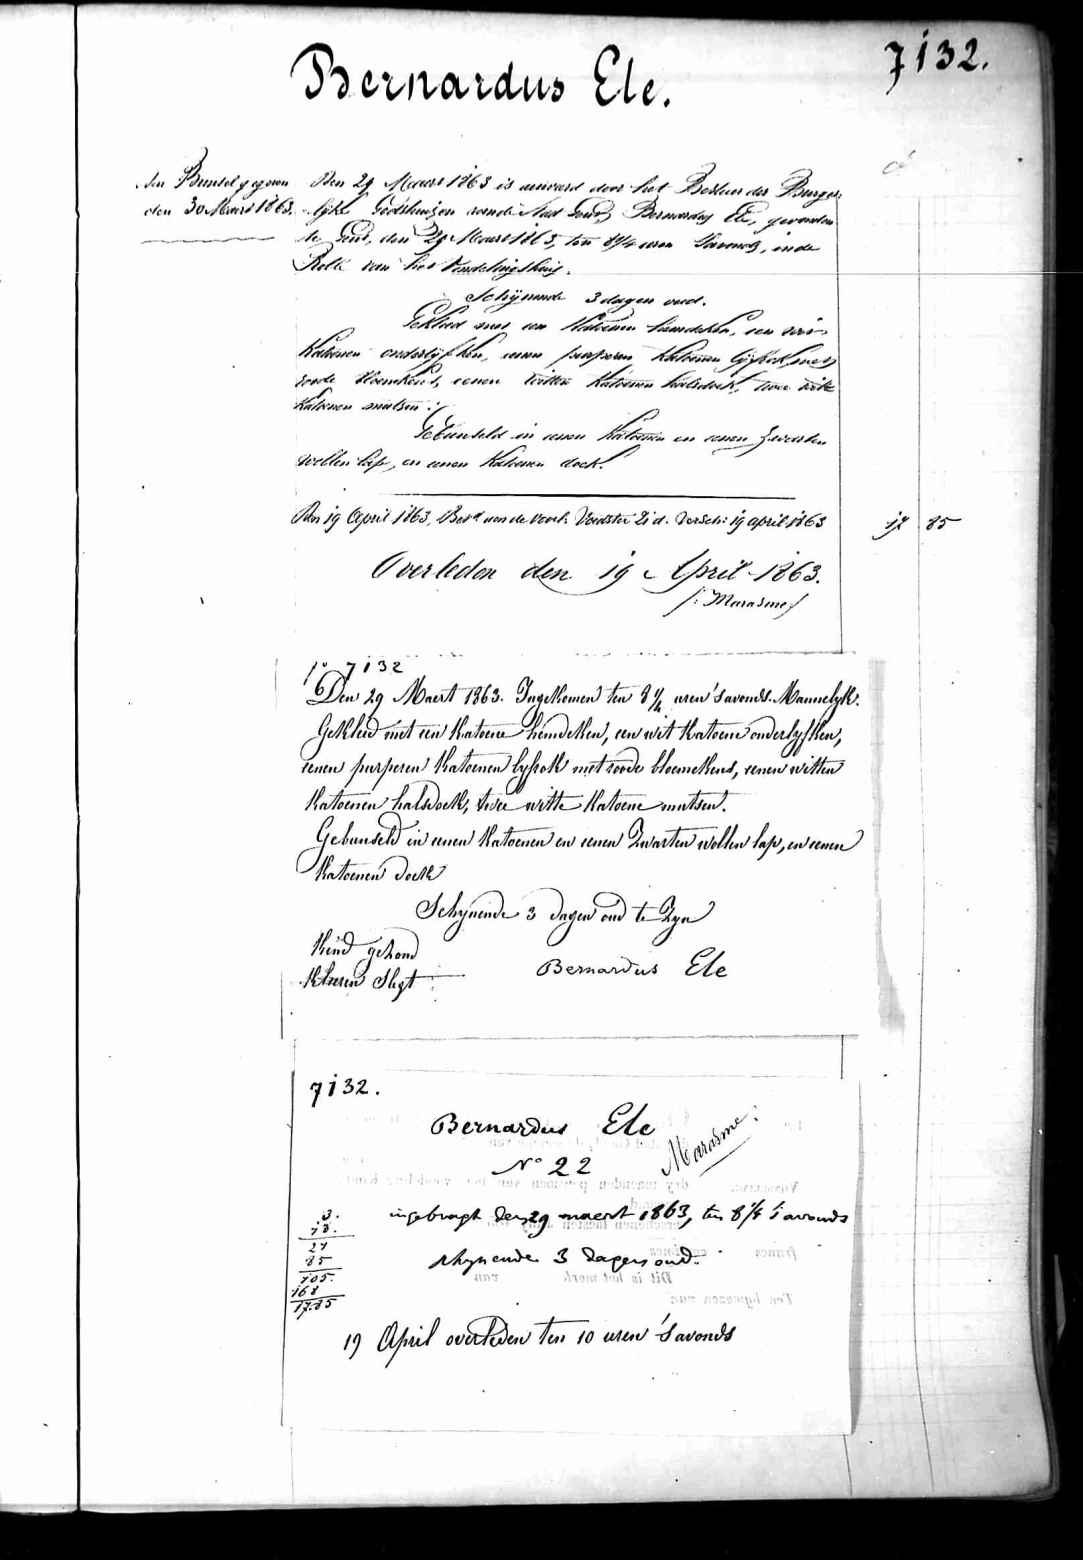 7132.
Bernardus Ele.
den Bunsel gegeven
den 30 Maart 1863.
Den 29 Maart 1863 is aanvaard door het Bestuur der Burger-
lijke Godshuizen van de Stad Gend, Bernardus Ele, gevonden
te Gent, den 29 Maart 1863, ten 8 1/4 uren 's avonds, in de
Rolle van het Vondelingshuis.
Schijnende 3 dagen oud.
Gekleed met een katoenen hemdeken, een wit
katoenen onderlijfken, eenen purperen katoenen lijfrok met
roode bloemkens, eenen witten katoenen halsdoek, twee witte
katoenen mutsen.
Gebunseld in eenen katoenen en eenen zwarten
wollen lap, en eenen katoenen doek.
Den 19 April 1863, Betd aan de voorl. Voedster 21 d. versch: 19 april 1863 17 85
Overleden den 19 April 1863.
/: Marasme /
No 7132
Den 29 Maert 1863. Ingekomen ten 8 1/4 uren 's avonds. Mannelyk.
Gekleed met een katoene hemdeken, een wit katoene onderlyfken,
eenen purperen katoenen lyfrok met roode bloemekens, eenen witten
katoenen halsdoek, twee witte katoene mutsen.
Gebunseld in eenen katoenen en eenen zwarten wollen lap, en eenen
katoenen doek
Schynende 3 dagen oud te zyn
Kind gezond
Kleeren Slegt
Bernardus Ele
7132.
Bernardus Ele
No 22
Marasme
ingebragt den 29 maert 1863, ten 8 1/4 's avonds
schynende 3 dagen oud.
3.
18.
21
85
105.
168
17.85
19 April overleden ten 10 uren 's avonds